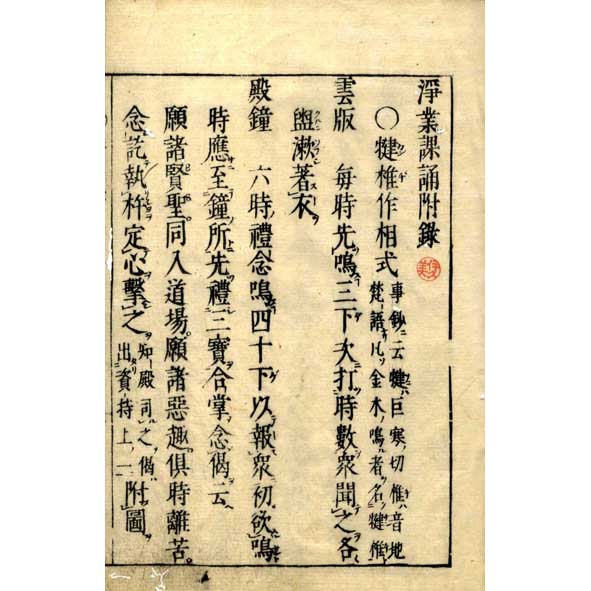 淨業課誦附錄
〇犍椎作相式 事鈔ニ云犍ハ巨寒切椎ハ音地
梵語ナリ凡ソ金木ノ鳴ル者ヲ名ク犍椎ト
雲版 毎時先鳴三下次打時數衆聞之各
盥漱著衣
殿鐘 六時禮念鳴四十下以報衆初欲鳴
時應至鐘所先禮三寶合掌念偈云
願諸賢聖同入道場願諸惡趣俱時離苦。
念訖執杵定心擊之 知殿司之偈
出資持上一附圖